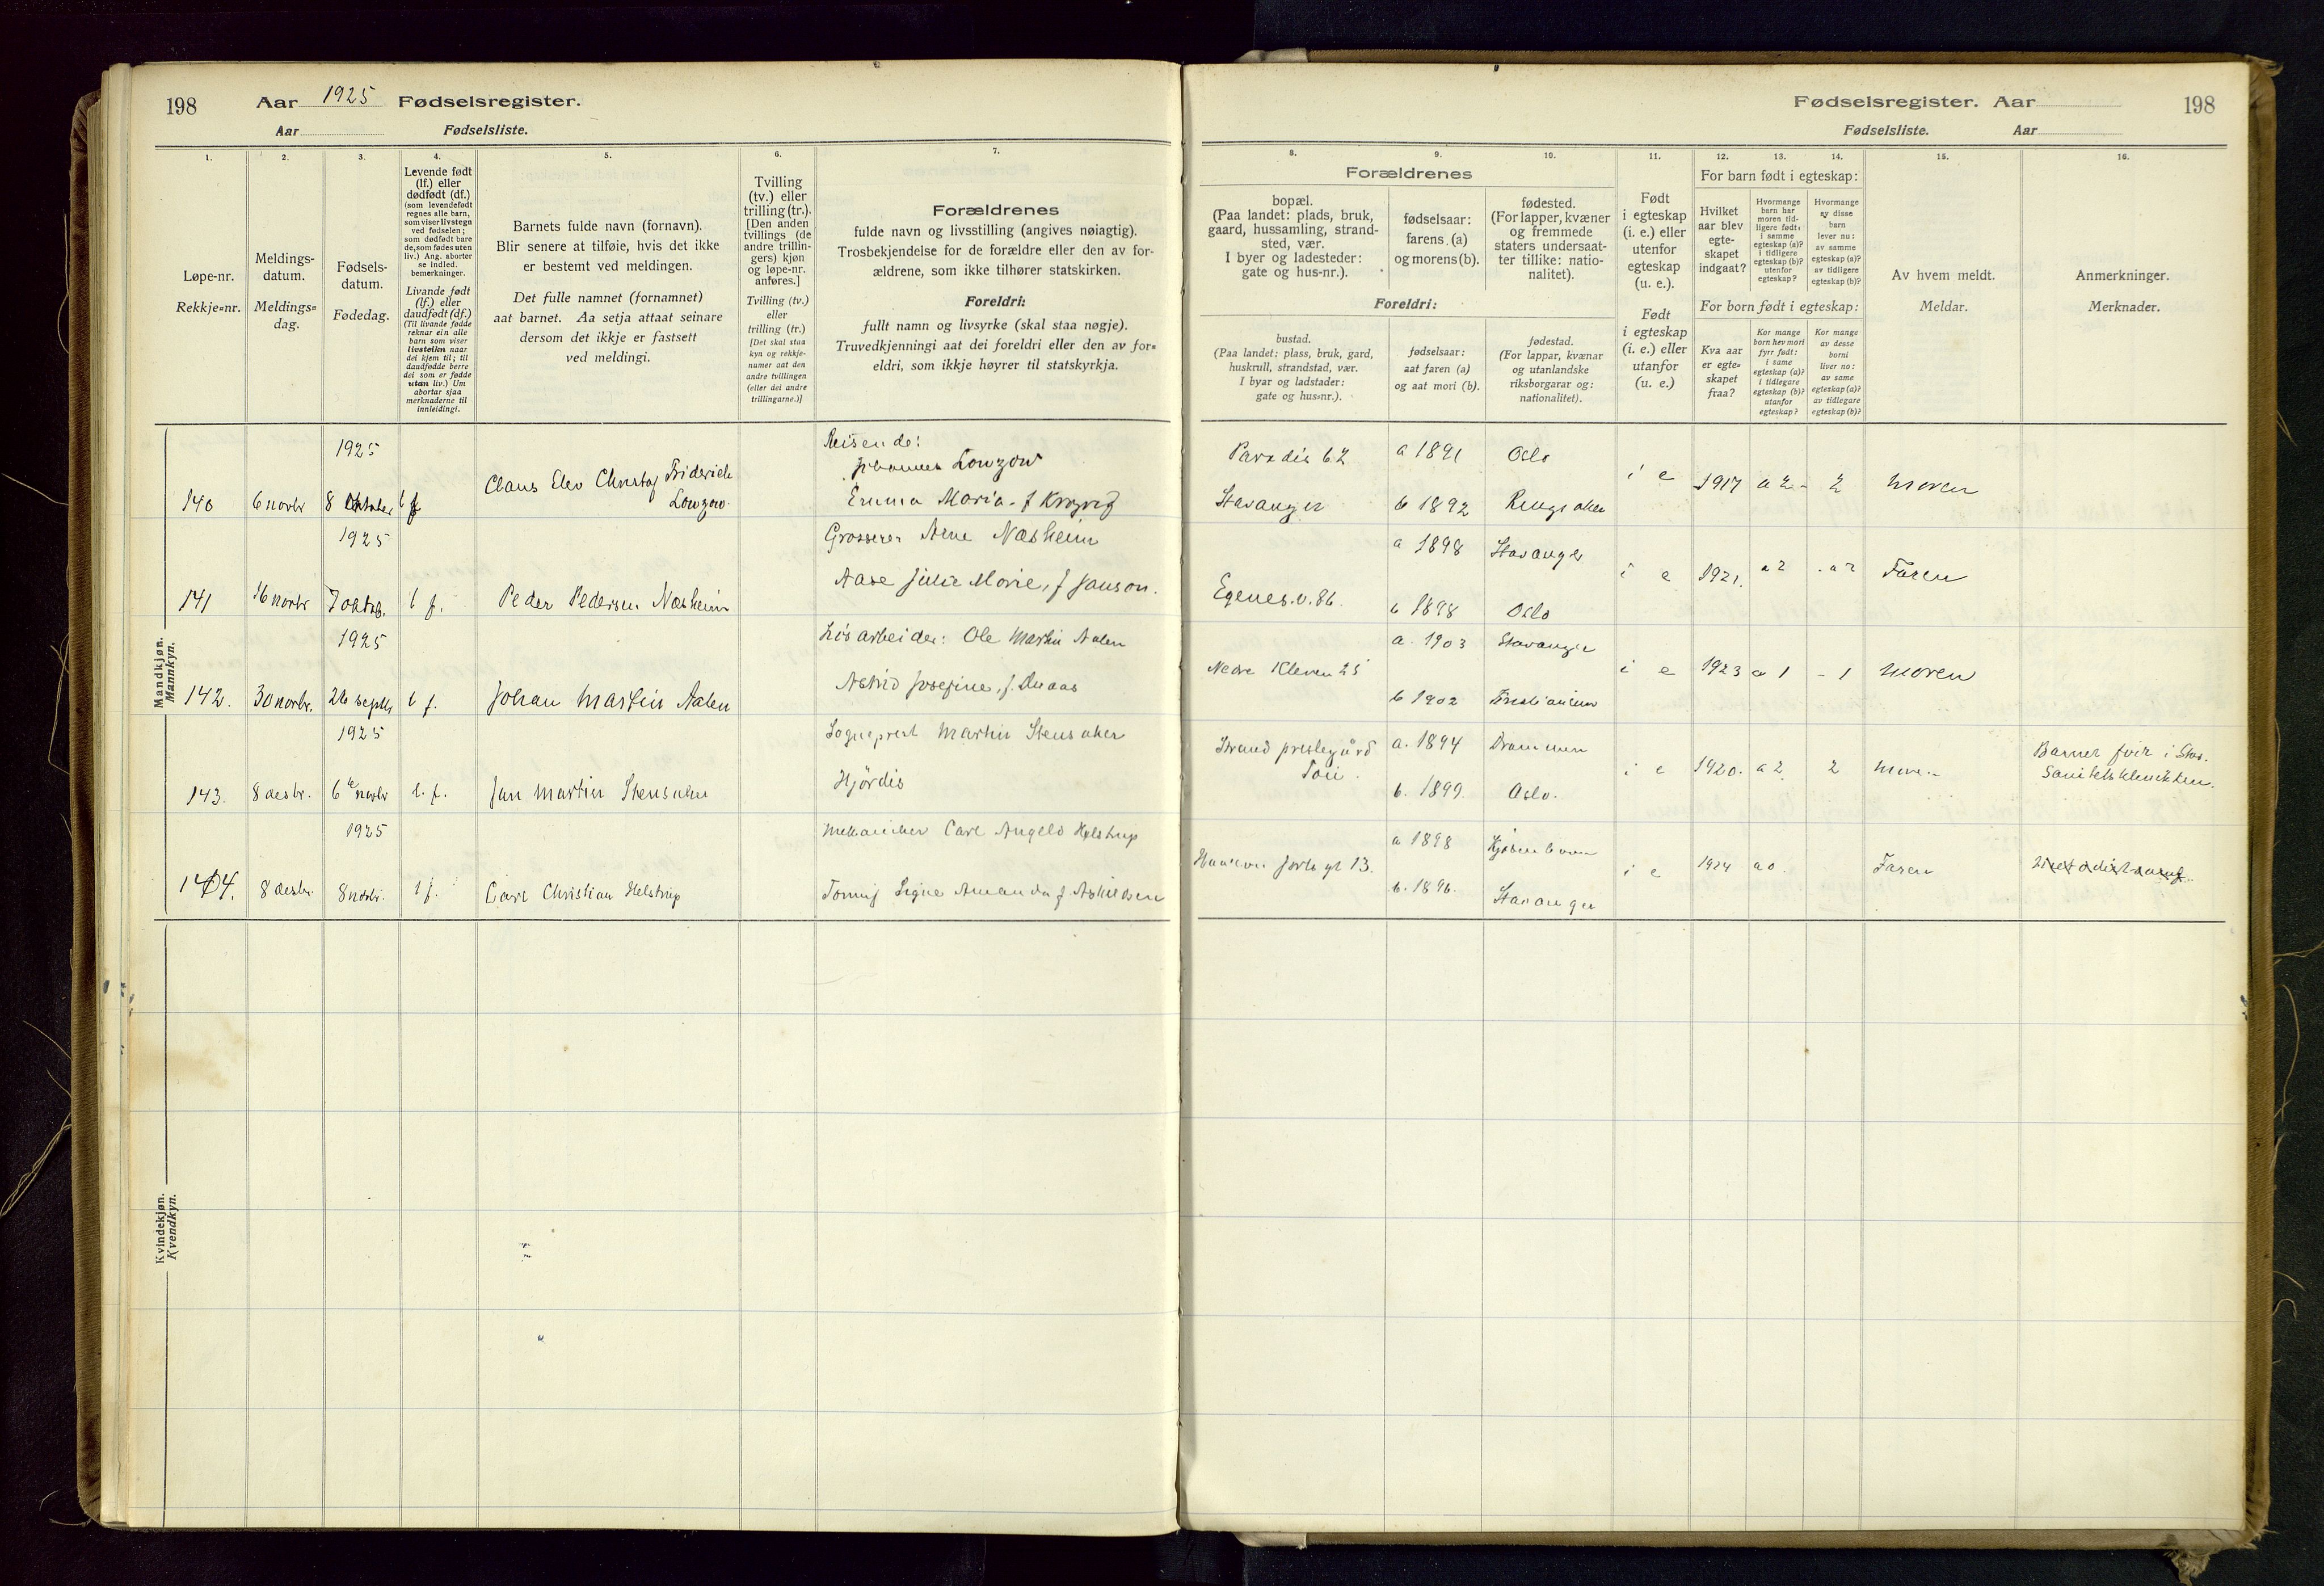 198 Aar 1925 Fødselsregister.
Aar Fødselsliste.
1. 2. 3. 4. 5. 6. 7.
Løpe-nr.
Rekkje=nr.
Meldings-
datum.
Meldings=
dag.
Fødsels-
datum.
Fødedag.
Levende født
(lf.) eller
dødfødt (df.)
(som levendefødt
regnes alle barn,
som viser livstegn
ved fødselen;
som dødfødt bare
de, som fødes uten
liv.) Ang. aborter
se indled.
bemerkninger.
Livande født
(lf.) eller
daudfødt (df.)
(Til livande fødde
reknar ein alle
barn som viser
livsteikn naar
dei kjem til; til
daudfødde berre
dei som er fødde
utan liv.) Um
abortar sjaa
merknaderne til
innleidingi.
Barnets fulde navn (fornavn).
Blir senere at tilføie, hvis det ikke
er bestemt ved meldingen.
Det fulle namnet (fornamnet)
aat barnet. Aa setja attaat seinare
dersom det ikkje er fastsett
ved meldingi.
Tvilling
(tv.) eller
trilling (tr.).
[Den anden
tvillings (de
andre trillin-
gers) kjøn
og løpe-nr.
anføres.]
Tvilling (tv.)
eller
trilling (tr.)
[Det skal staa
kyn og rekkje-
numer aat den
andre tvillingen
(eller dei andre
trillingarne.)]
Forældrenes
fulde navn og livsstilling (angives nøiagtig).
Trosbekjendelse for de forældre eller den av for-
ældrene, som ikke tilhører statskirken.
Foreldri:
fullt namn og livsyrke (skal staa nøgje).
Truvedkjenningi aat dei foreldri eller den av for=
eldri, som ikkje høyrer til statskyrkja.
Mandkjøn.
Mannkyn.
1925
Reisende:
Johannes Lowzow
140 6 novbr 8 Oktober l f Claus Elev Christof Friderich
Lowzow
Emma Maria f
1925
Grosserer Arne Næsheim
141 16 novbr 7 oktob. l f. Peder Pedersen Næsheim
Aase Julie Marie, f Janson.
1925
Løsarbeider: Ole Martin Aalen
142. 30 novbr. 26 septbr l f. Johan Martin Aalen
Astrid Josefine, f.
1925
Sogneprest Martin Stensaker
143. 8 desbr. 6te novbr l. f. Jan Martin Stensaker
Hjørdis
1925
Mekaniker Carl Angelo Helstrup
144. 8 desbr. 8 novbr. l f. Carl Christian Helstrup
Signe Amanda f Askildsen
Kvindekjøn.
Kvendkyn.
Fødselsregister. Aar 198
Fødselsliste. Aar
8. 9. 10. 11. 12. 13. 14. 15. 16.
Forældrenes
bopæl.
(Paa landet: plads, bruk,
gaard, hussamling, strand-
sted, vær.
I byer og ladesteder:
gate og hus-nr.).
fødselsaar:
farens (a)
og morens (b).
fødested.
(For lapper, kvæner
og fremmede
staters undersaat-
ter tillike: natio-
nalitet).
Foreldri:
bustad.
(Paa landet: plass, bruk, gard,
huskrull, strandstad, vær.
I byar og ladstader:
gate og hus=nr.).
fødselsaar:
aat faren (a)
og aat mori (b).
fødestad.
(For lappar, kvænar
og utanlandske
riksborgarar og:
nationalitet).
Født
i egteskap
(i. e.) eller
utenfor
egteskap
(u. e.).
Født
i egteskap
(i. e.) eller
utanfor
(u. e.)
For barn født i egteskap:
Hvilket
aar blev
egte-
skapet
indgaat?
Hvormange
barn har
moren tid-
ligere født:
i samme
egteskap (a)?
i tidligere
egteskap (b)?
utenfor
egteskap?
Hvormange
av disse
barn
lever nu:
av samme
egteskap (a)?
av tidligere
egteskap (b)?
For born født i egteskap:
Kva aar
er egte=
skapet
fraa?
Kor mange
born hev mori
fyrr født:
i same
egteskap (a)?
i tidlegare
egteskap (b)?
utanfor
egteskap?
Kor mange
av desse
borni
liver no:
av same
egteskap (a)?
av tidlegare
egteskap (b)?
Av hvem meldt.
Meldar.
Anmerkninger.
Merknader.
Paradis 62 a 1891 Oslo
i e 1917 a 2 - 2 Moren
Stavanger b 1892 Ringsaker
a 1898 Stavanger
i e 1921. a 2 a 2 Faren
Egenes.v.86. b 1898 Oslo
a. 1903 Stavanger
Nedre Kleven 25 i e 1923 a 1 - 1 Moren
b 1902 Kristiansund
Strand prestegård a. 1894 Drammen
Tau. i e 1920. a 2 2 Moren
Barnet født i Stav.
Sanitetsklinikken.
b. 1899. Oslo.
a 1898 Kjøbenhavn
13. i e 1924 a 0. Faren
b. 1896. Stavanger